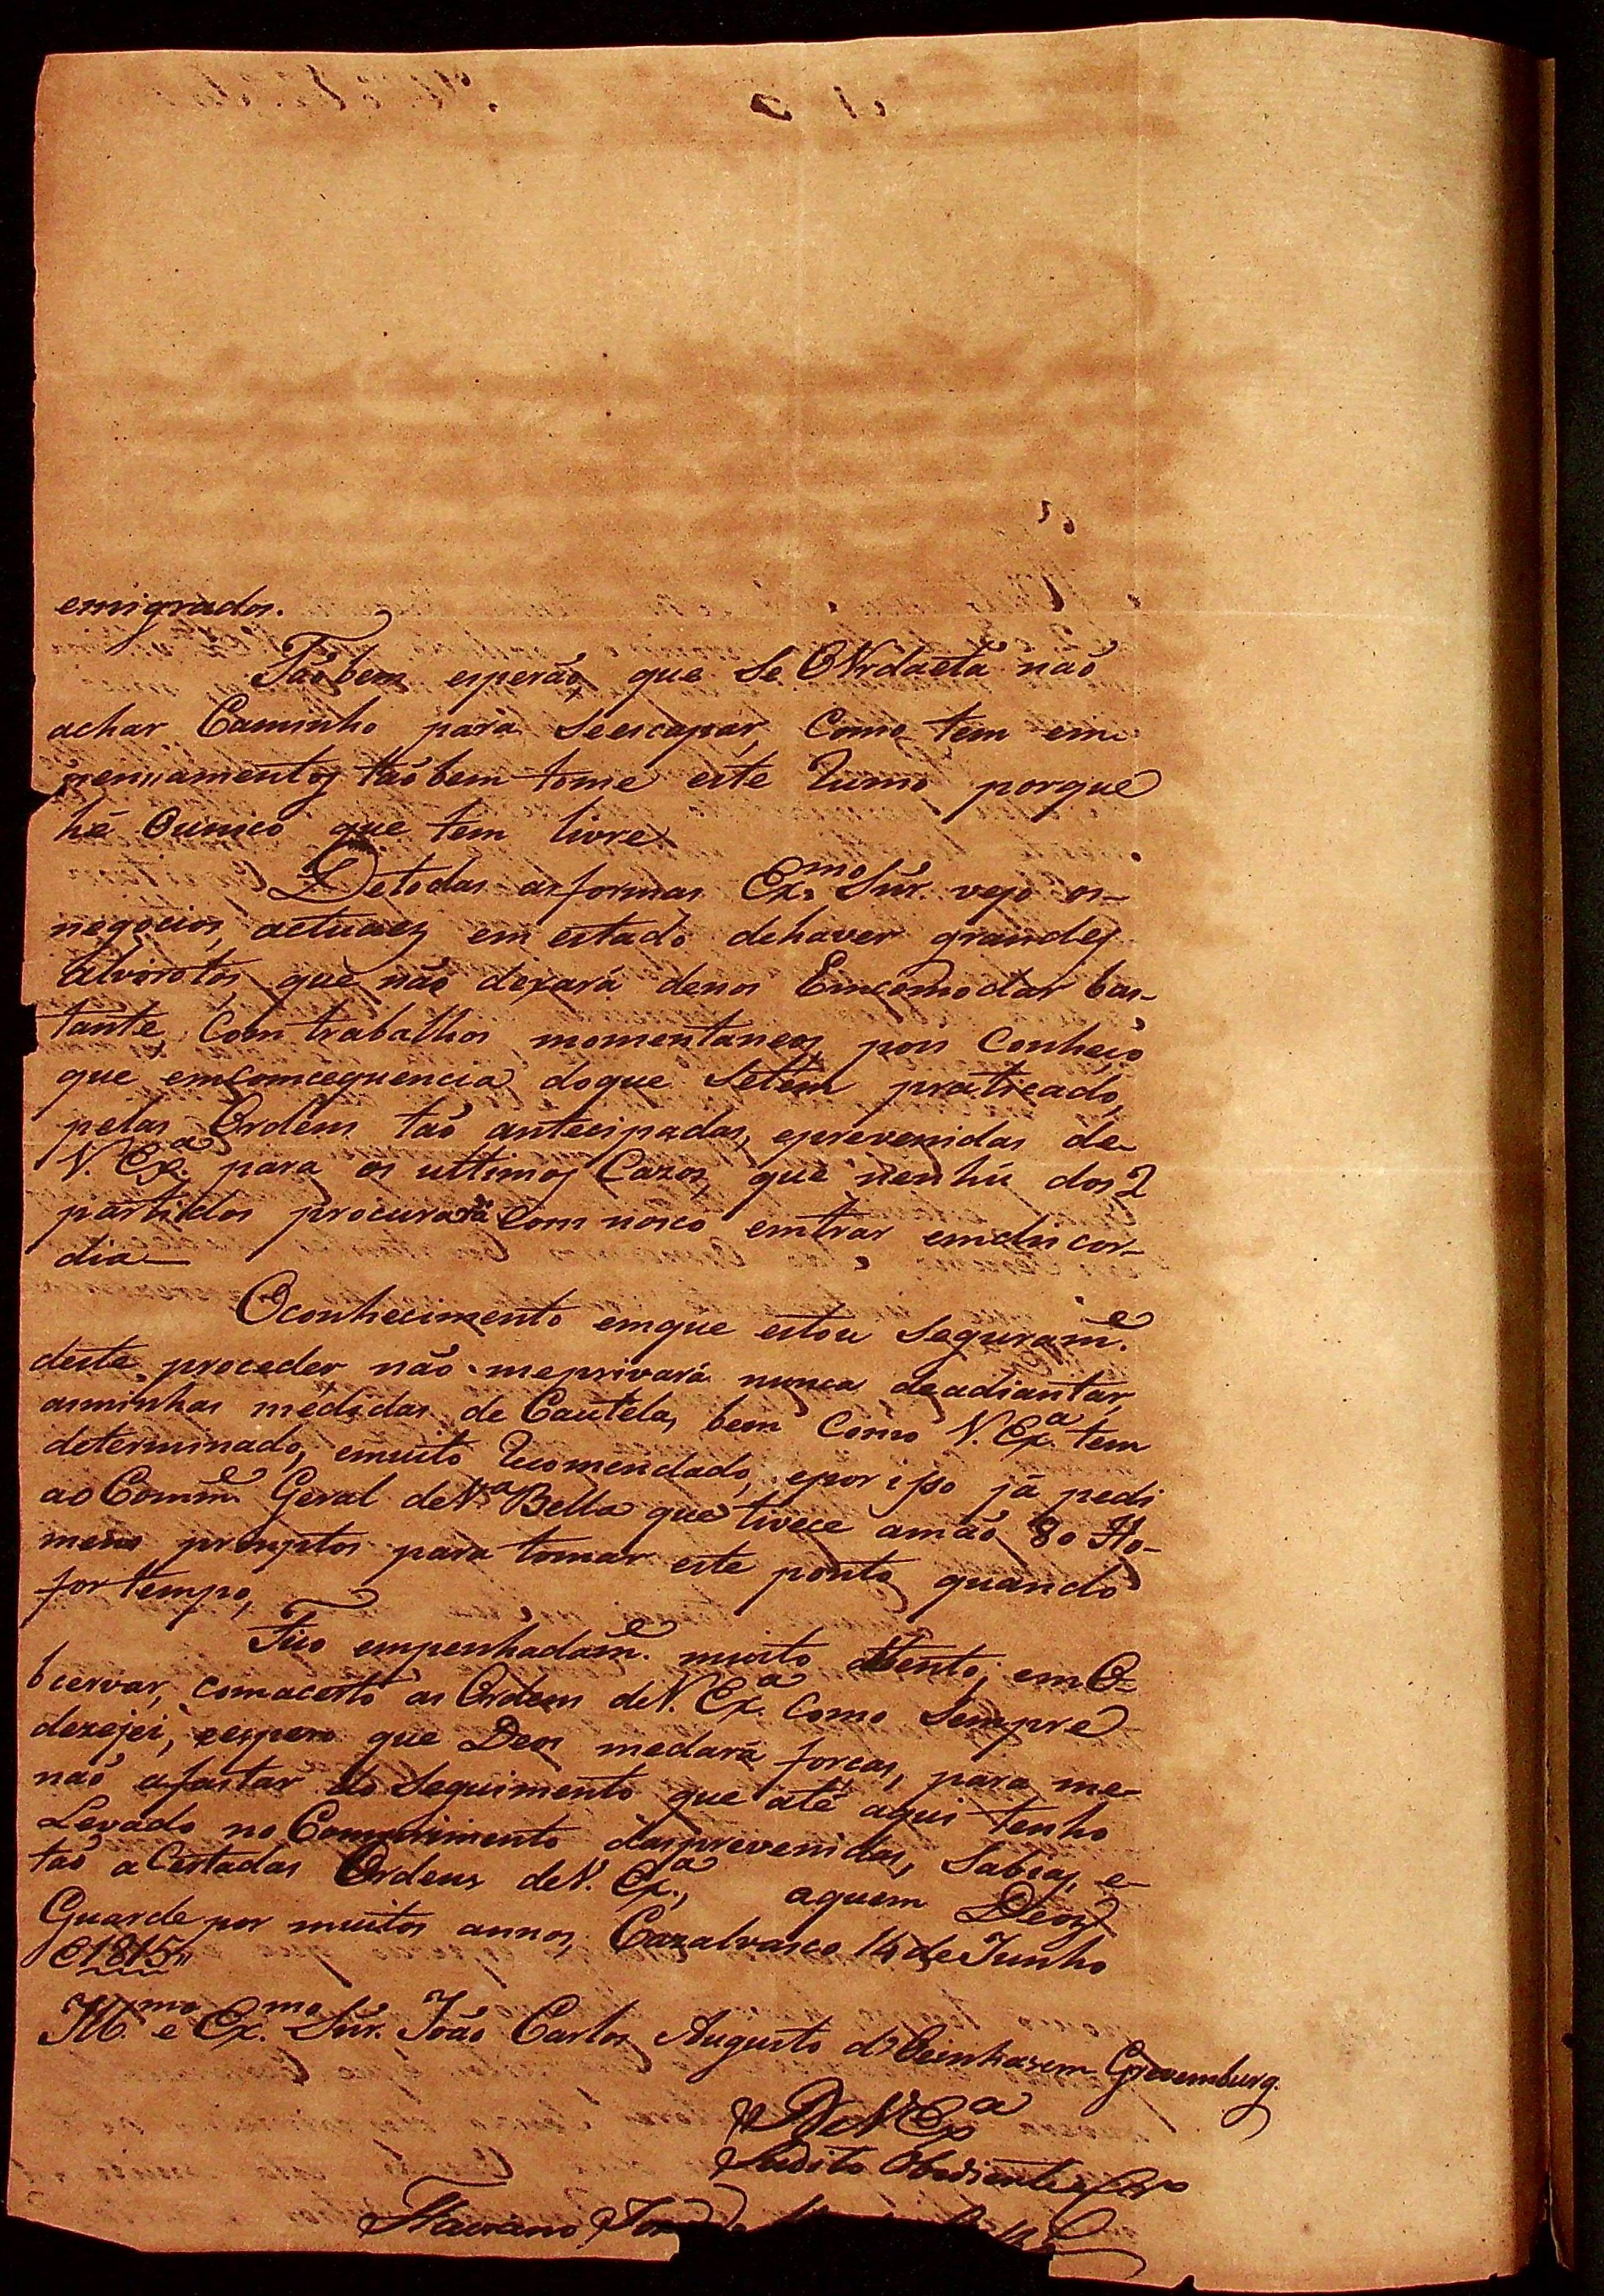 emigrados.
Tãobem esperão, que se OVrdaeta não
achar Caminho para seescapar, Como tem em
pensamentos tãobem tome este rumo porque
hé Ounico que tem livre.
Detodas asformas Ex.mo Snr. vejo os
negocios actuaes em estado dehaver grandes
alvorotos que não dexará denos Emcomodar bas-
tante, Com trabalhos momentaneos, pois Conheço
que emcomcequencia doque setem praticado,
pelas Ordens tão antecipadas, eprevenidas de
V. Ex.a para os ultimos Cazos, que nenhú dos 2
partidos procurará Com nosco emtrar emdiscor-
dia
Oconhecimento emque estou seguram.e
deste proceder não meprivará nunca deadiantar,
asminhas médidas de Cautela, bem Como V. Ex.a tem
determinado, emuito recomendado, epor isso já pedi
ao Comm.e Geral deV.a Bella que tivece amão 80 Ho-
mens promptos para tomar este ponto quando
for tempo,
Fico empenhadam.e muito attento, em O-
bcervar, comacerto as Ordens deV. Ex.a Como sempre
dezejei, eespero que Deos medará forças, para me
não afastar do seguimento que até aqui tenho
Levado no Comprimento dasprevenidas, Sabias, e
tão aCertadas Ordens deV. Ex.a, aquem Deos
Guarde por muitos annos, Cazalvasco 14 deJunho
de 1815
Ill.mo e Ex.mo Snr. João Carlos Augusto d'Oeinhasem Grevemburg.
DeV Ex.a
Sudito Obediente